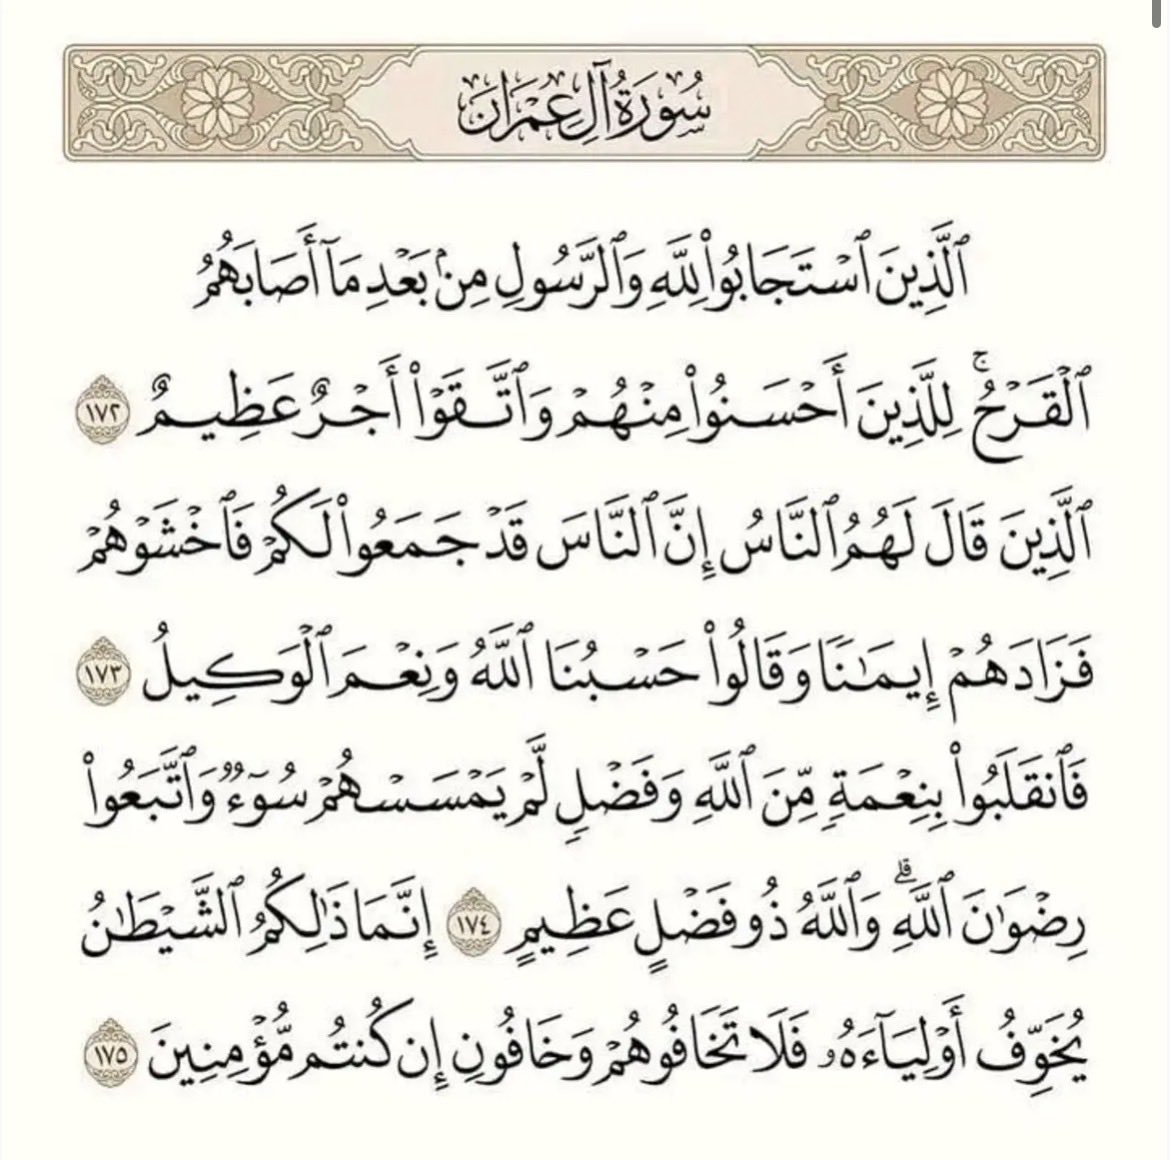 سُورَةُ آلِ عِمۡرَان
ٱلَّذِينَ ٱسۡتَجَابُواْ لِلَّهِ وَٱلرَّسُولِ مِنۢ بَعۡدِ مَآ أَصَابَهُمُ
ٱلۡقَرۡحُۚ لِلَّذِينَ أَحۡسَنُواْ مِنۡهُمۡ وَٱتَّقَوۡاْ أَجۡرٌ عَظِيمٌ ١٧٢
ٱلَّذِينَ قَالَ لَهُمُ ٱلنَّاسُ إِنَّ ٱلنَّاسَ قَدۡ جَمَعُواْ لَكُمۡ فَٱخۡشَوۡهُمۡ
فَزَادَهُمۡ إِيمَٰنٗا وَقَالُواْ حَسۡبُنَا ٱللَّهُ وَنِعۡمَ ٱلۡوَكِيلُ ١٧٣
فَٱنقَلَبُواْ بِنِعۡمَةٖ مِّنَ ٱللَّهِ وَفَضۡلٖ لَّمۡ يَمۡسَسۡهُمۡ سُوٓءٞ وَٱتَّبَعُواْ
رِضۡوَٰنَ ٱللَّهِۗ وَٱللَّهُ ذُو فَضۡلٍ عَظِيمٍ ١٧٤ إِنَّمَا ذَٰلِكُمُ ٱلشَّيۡطَٰنُ
يُخَوِّفُ أَوۡلِيَآءَهُۥ فَلَا تَخَافُوهُمۡ وَخَافُونِ إِن كُنتُم مُّؤۡمِنِينَ ١٧٥